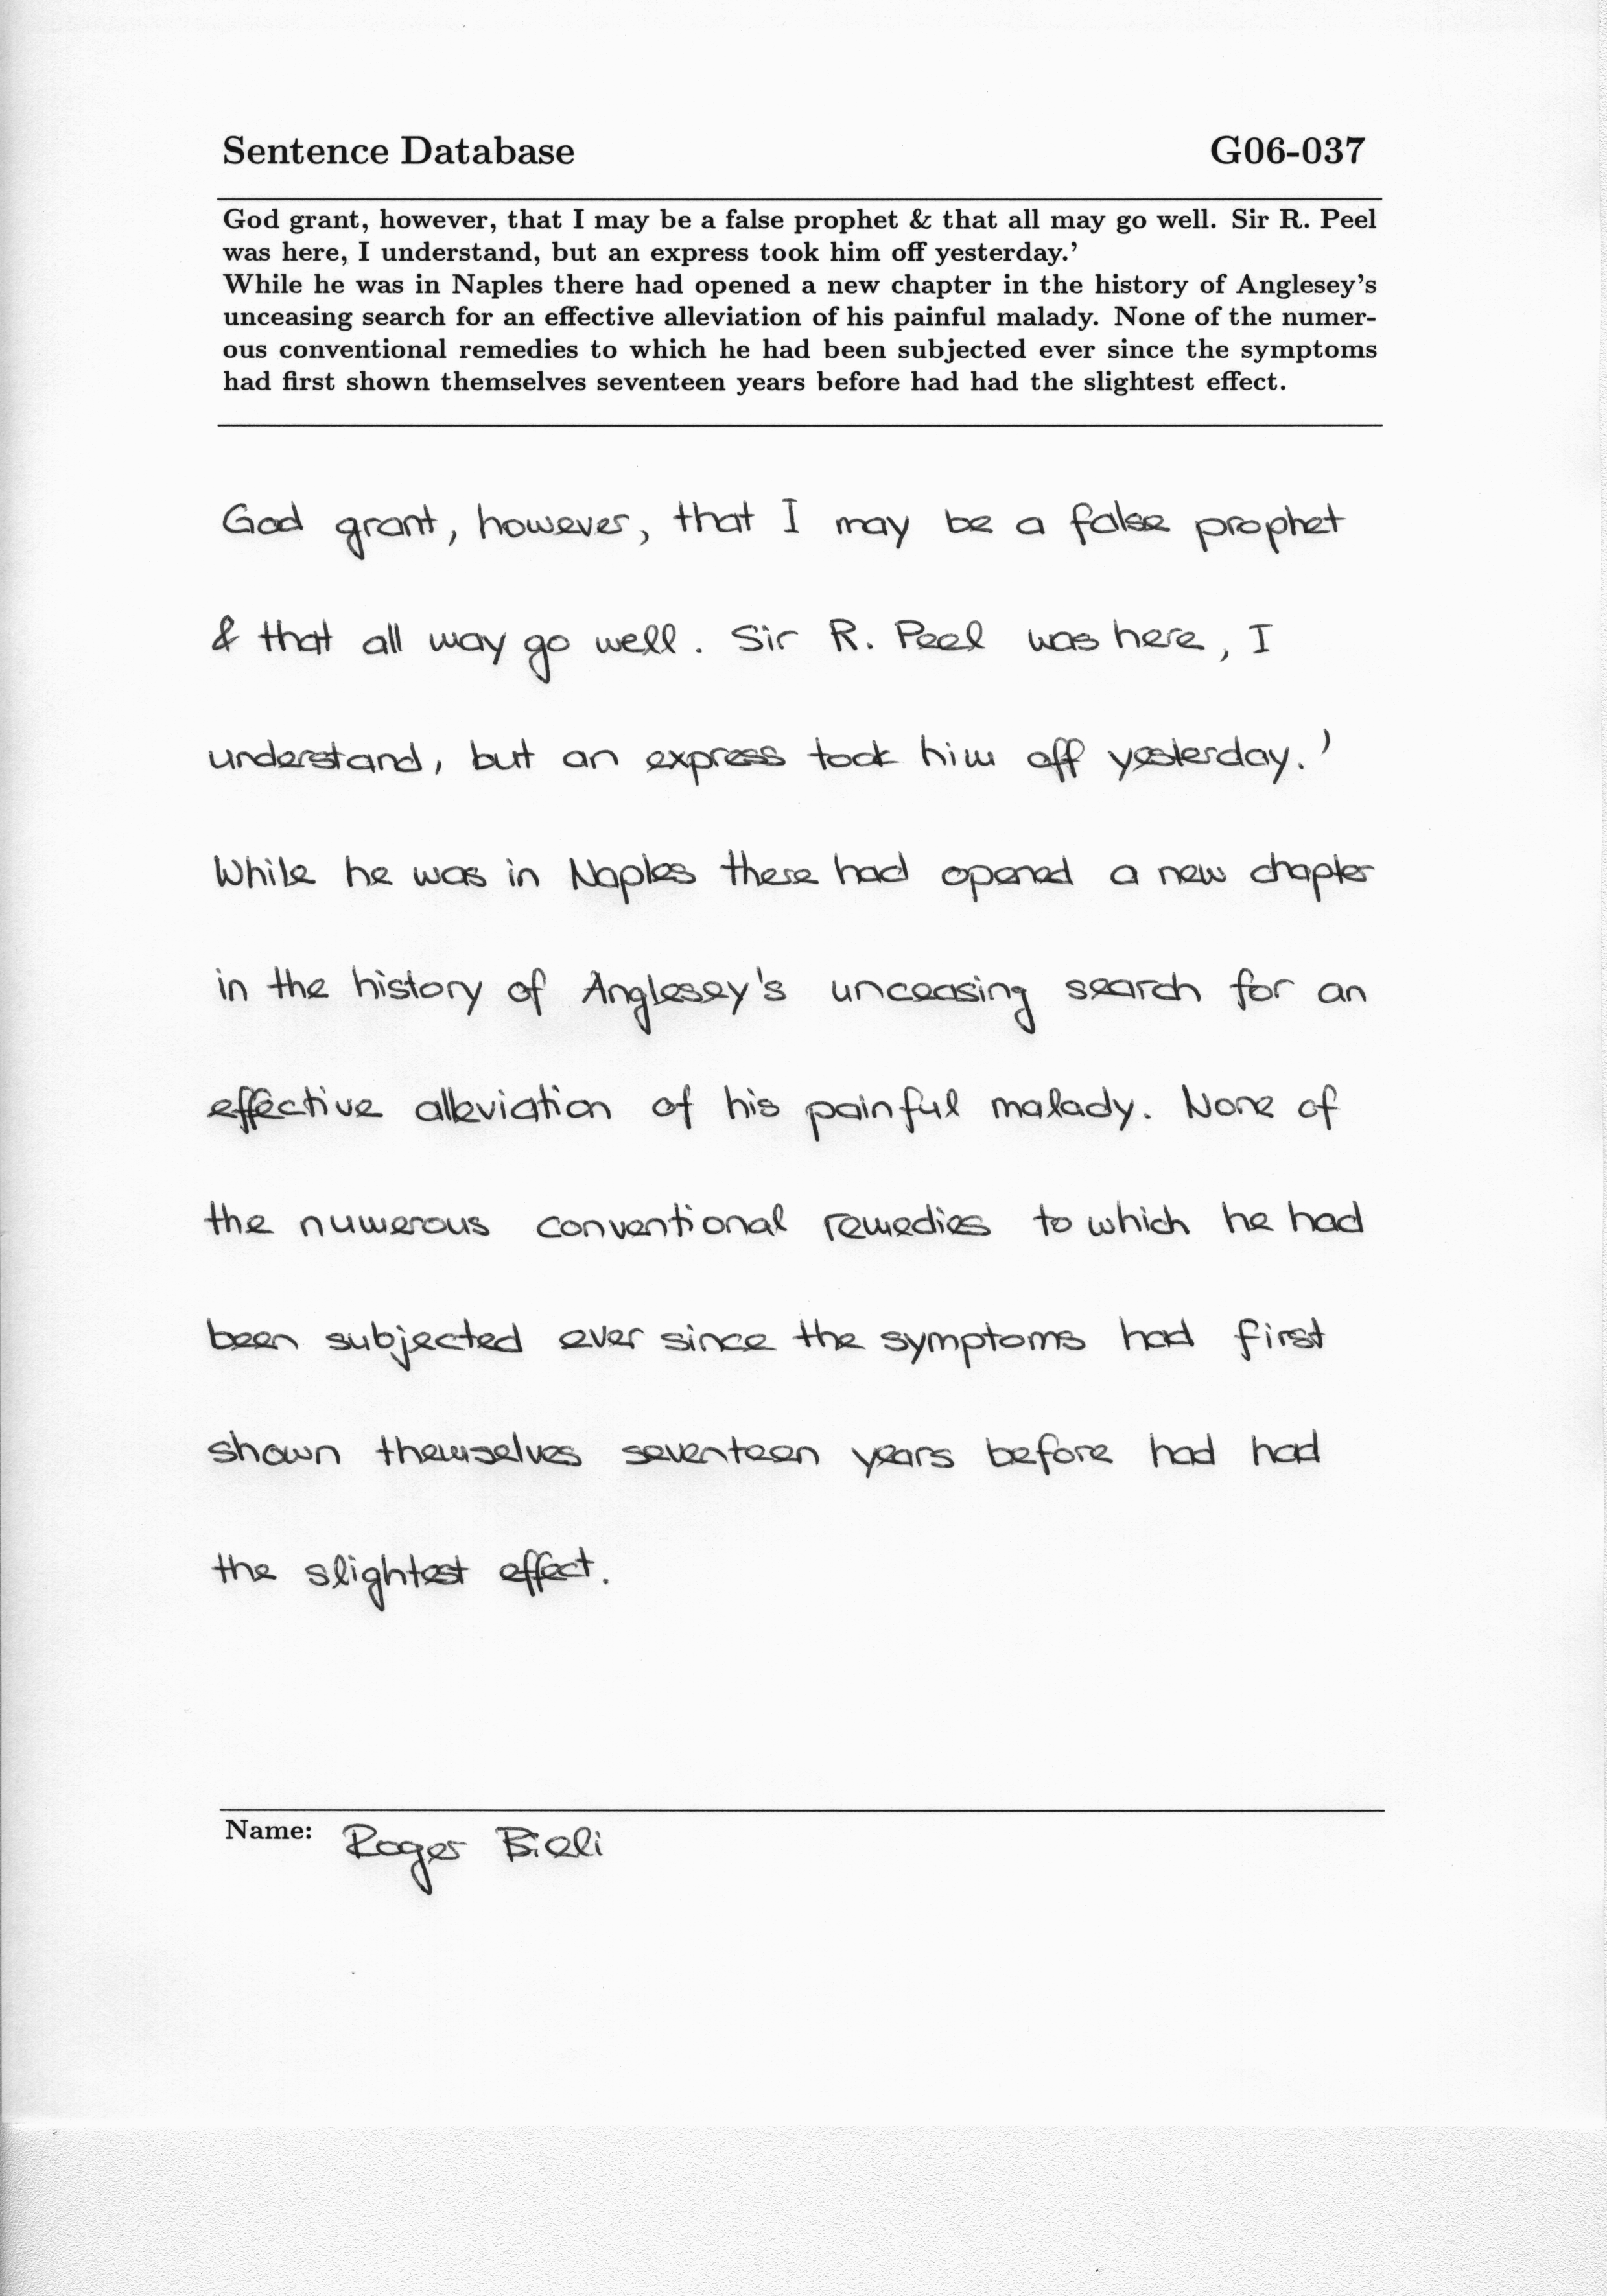 Sentence Database G06-037
God grant, however, that I may be a false prophet & that all may go well. Sir R. Peel
was here, I understand, but an express took him off yesterday.’
While he was in Naples there had opened a new chapter in the history of Anglesey’s
unceasing search for an effective alleviation of his painful malady. None of the numer-
ous conventional remedies to which he had been subjected ever since the symptoms
had first shown themselves seventeen years before had had the slightest effect.
God grant, however, that I may be a false prophet
& that all may go well. Sir R. Peel was here, I
understand, but an express took him off yesterday.'
While he was in Naples there had opened a new chapter
in the history of Anglesey's unceasing search for an
effective alleviation of his painful malady. None of
the numerous conventional remedies to which he had
been subjected ever since the symptoms had first
shown themselves seventeen years before had had
the slightest effect.
Name: Roger Bieli